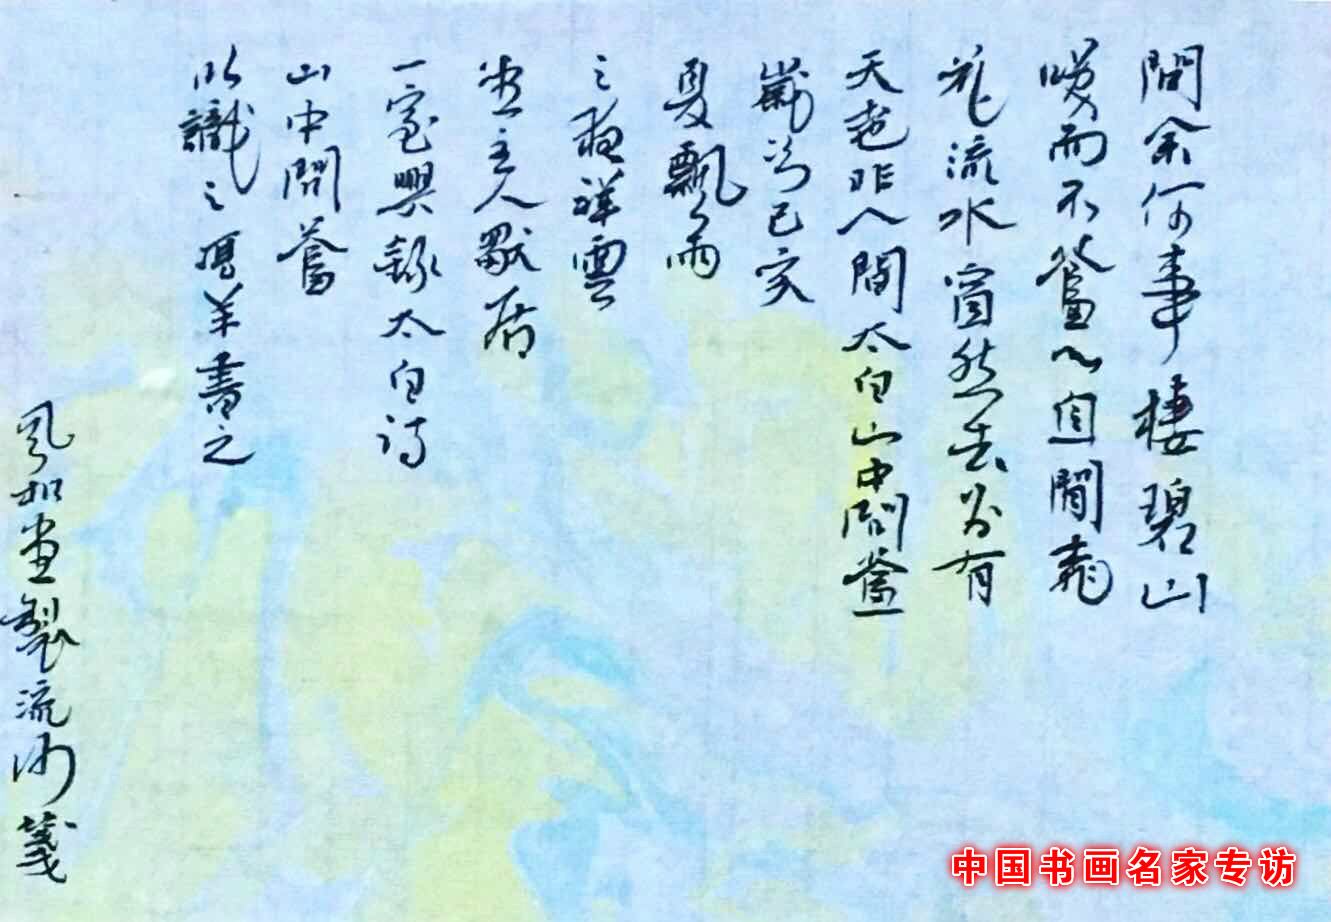 問余何事棲碧山
咲而不答心自閒桃
花流水窅然去别有
天地非人間太白山中問答
歲次己亥
夏飄雨
之夜祥雲
堂主人獨居
一室興錄太白詩
山中問答
以識之 馮羊書之
風和堂製流沙箋
中国书画名家专访